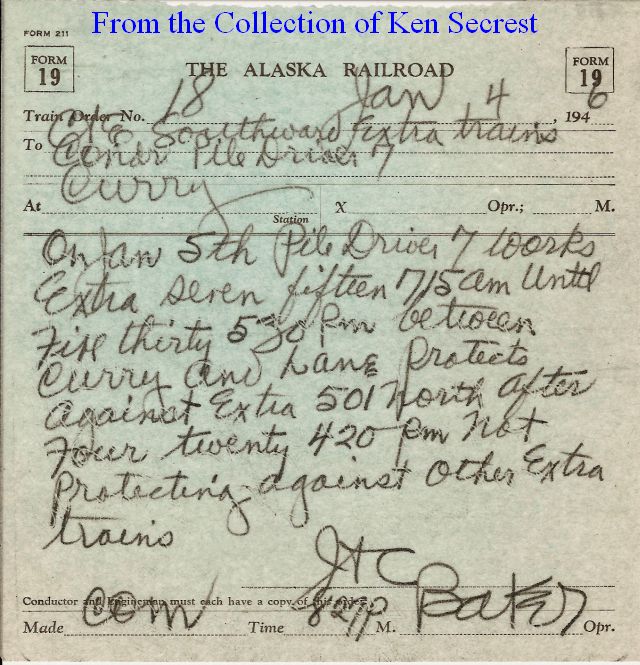 From the Collection of Ken Secrest
FORM 211
FORM 19
THE ALASKA RAILROAD
FORM 19
Train Order No. 18 Jan 4, 1946
To C&E Southward Extra trains
Condr Pile Driver 7
Curry
At Station X Opr.; M.
On Jan 5th Pile Driver 7 works
Extra seven fifteen 715 am Until
Five thirty 530 pm between
Curry and Lane Protects
against Extra 501 North after
Four twenty 420 pm Not
Protecting against other Extra
trains
JHC
Conductor and Engineman must each have a copy of this order.
Made Com Time 827 P M. Baker Opr.